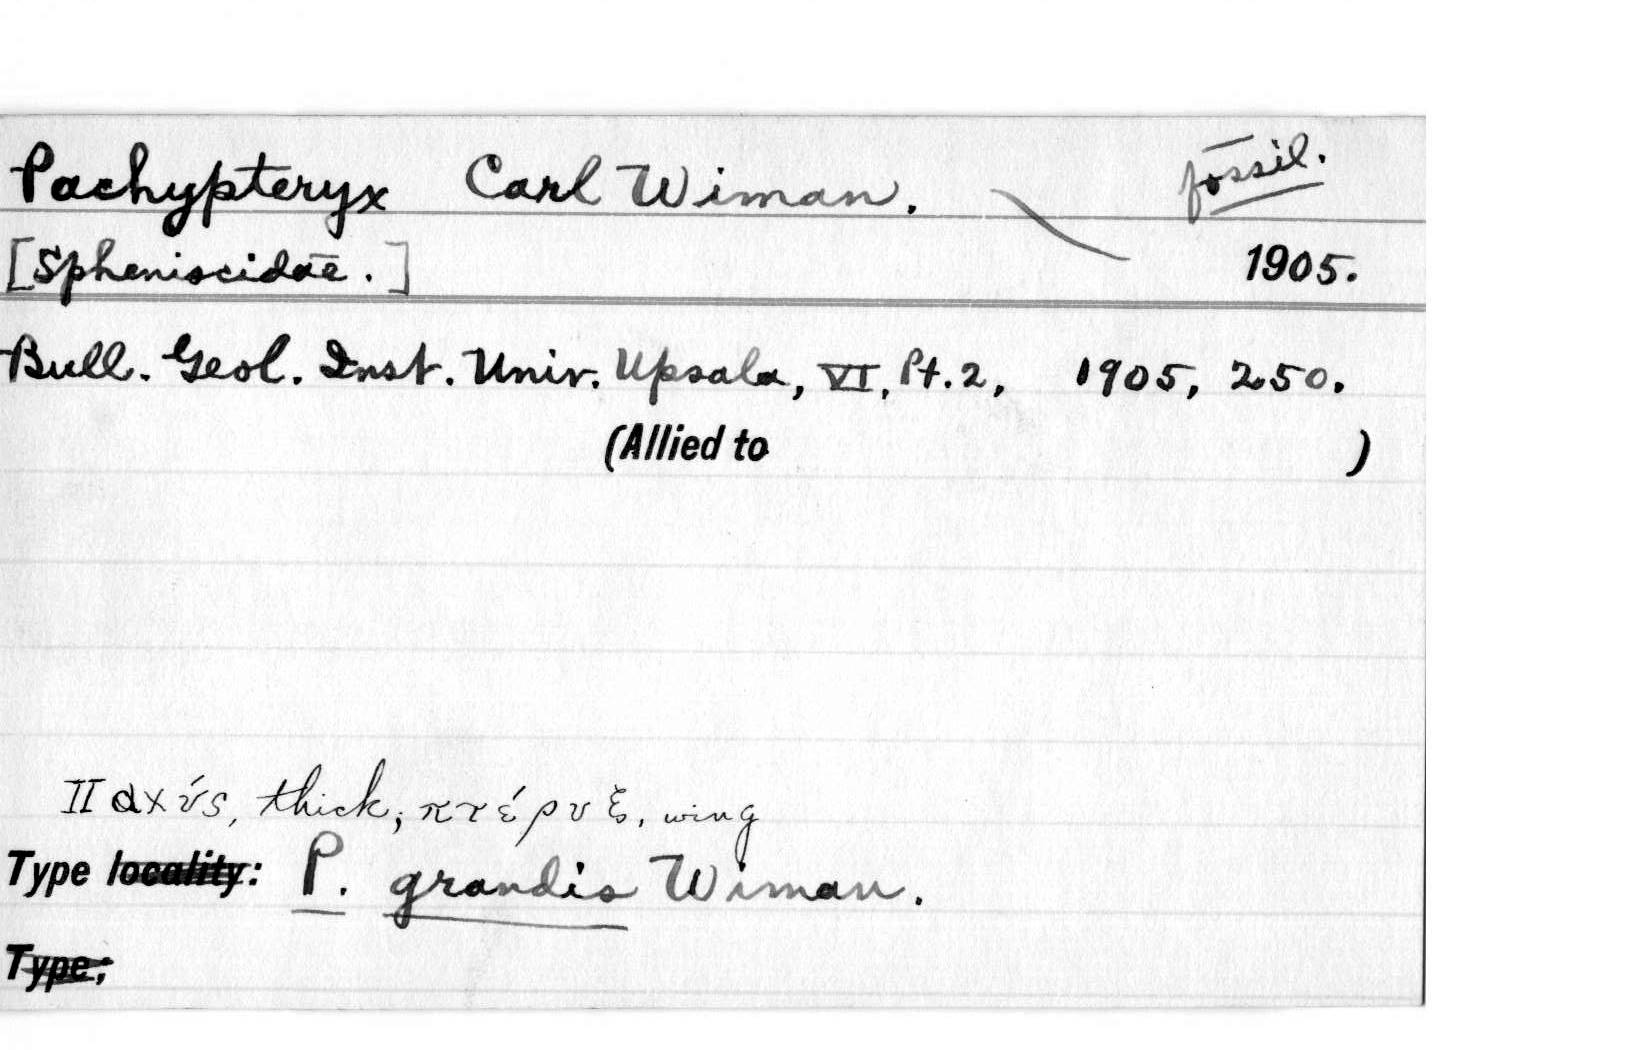 Pachypteryx Carl Wiman. fossil.
[Spheniscidae.] 1905.
Bull. Geol. Inst. Univ. Upsala, VI, Pt. 2, 1905, 250.
(Allied to )
Παχύς, thick; πτέρυξ, wing
Type locality: P. grandis Wiman.
Type: